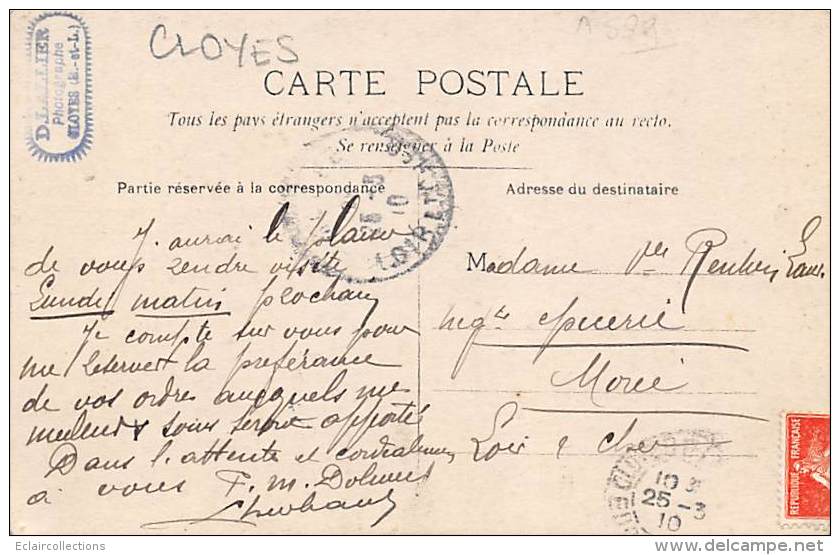 D. LALLIER
Photographe
CLOYES (E.-et-L.)
CLOYES
CARTE POSTALE
Tous les pays étrangers n'acceptent pas la correspondance au recto.
Se renseigner à la Poste
Partie réservée à la correspondance
Adresse du destinataire
J'aurai le plaisir
de vous rendre visite
Lundi matin prochain
Je compte sur vous pour
me réserver la préférence
de vos ordres auxquels mes
meilleurs soins seront apportés
Dans l'attente et cordialement
à vous F. M.
Madame Vve
Négte épicerie
Morée
Loir & Cher
LOIR
10
25-3
10
REPUBLIQUE FRANÇAISE
Eclaircollections
delcampe.net